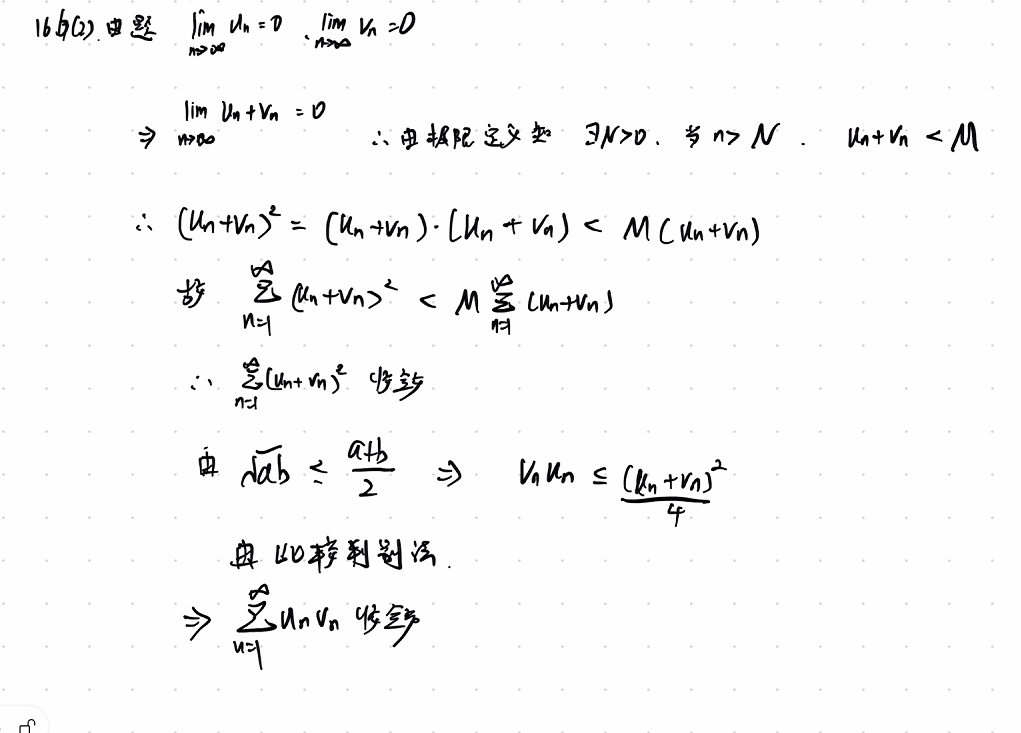 16 (2). 由题 lim n→∞ uₙ = 0 . lim n→∞ vₙ = 0
⇒ lim n→∞ uₙ + vₙ = 0 ∴ 由极限定义知 ∃N>0. 当 n > N . uₙ + vₙ < M
∴ (uₙ + vₙ)² = (uₙ + vₙ)·(uₙ + vₙ) < M (uₙ + vₙ)
故 ∑ₙ₌₁^∞ (uₙ + vₙ)² < M ∑ₙ₌₁^∞ (uₙ + vₙ)
∴ ∑ₙ₌₁^∞ (uₙ + vₙ)² 收敛
由 √ab ≤ (a+b)/2 ⇒ vₙuₙ ≤ (uₙ + vₙ)²/4
由比较判别法.
⇒ ∑ₙ₌₁^∞ uₙvₙ 收敛